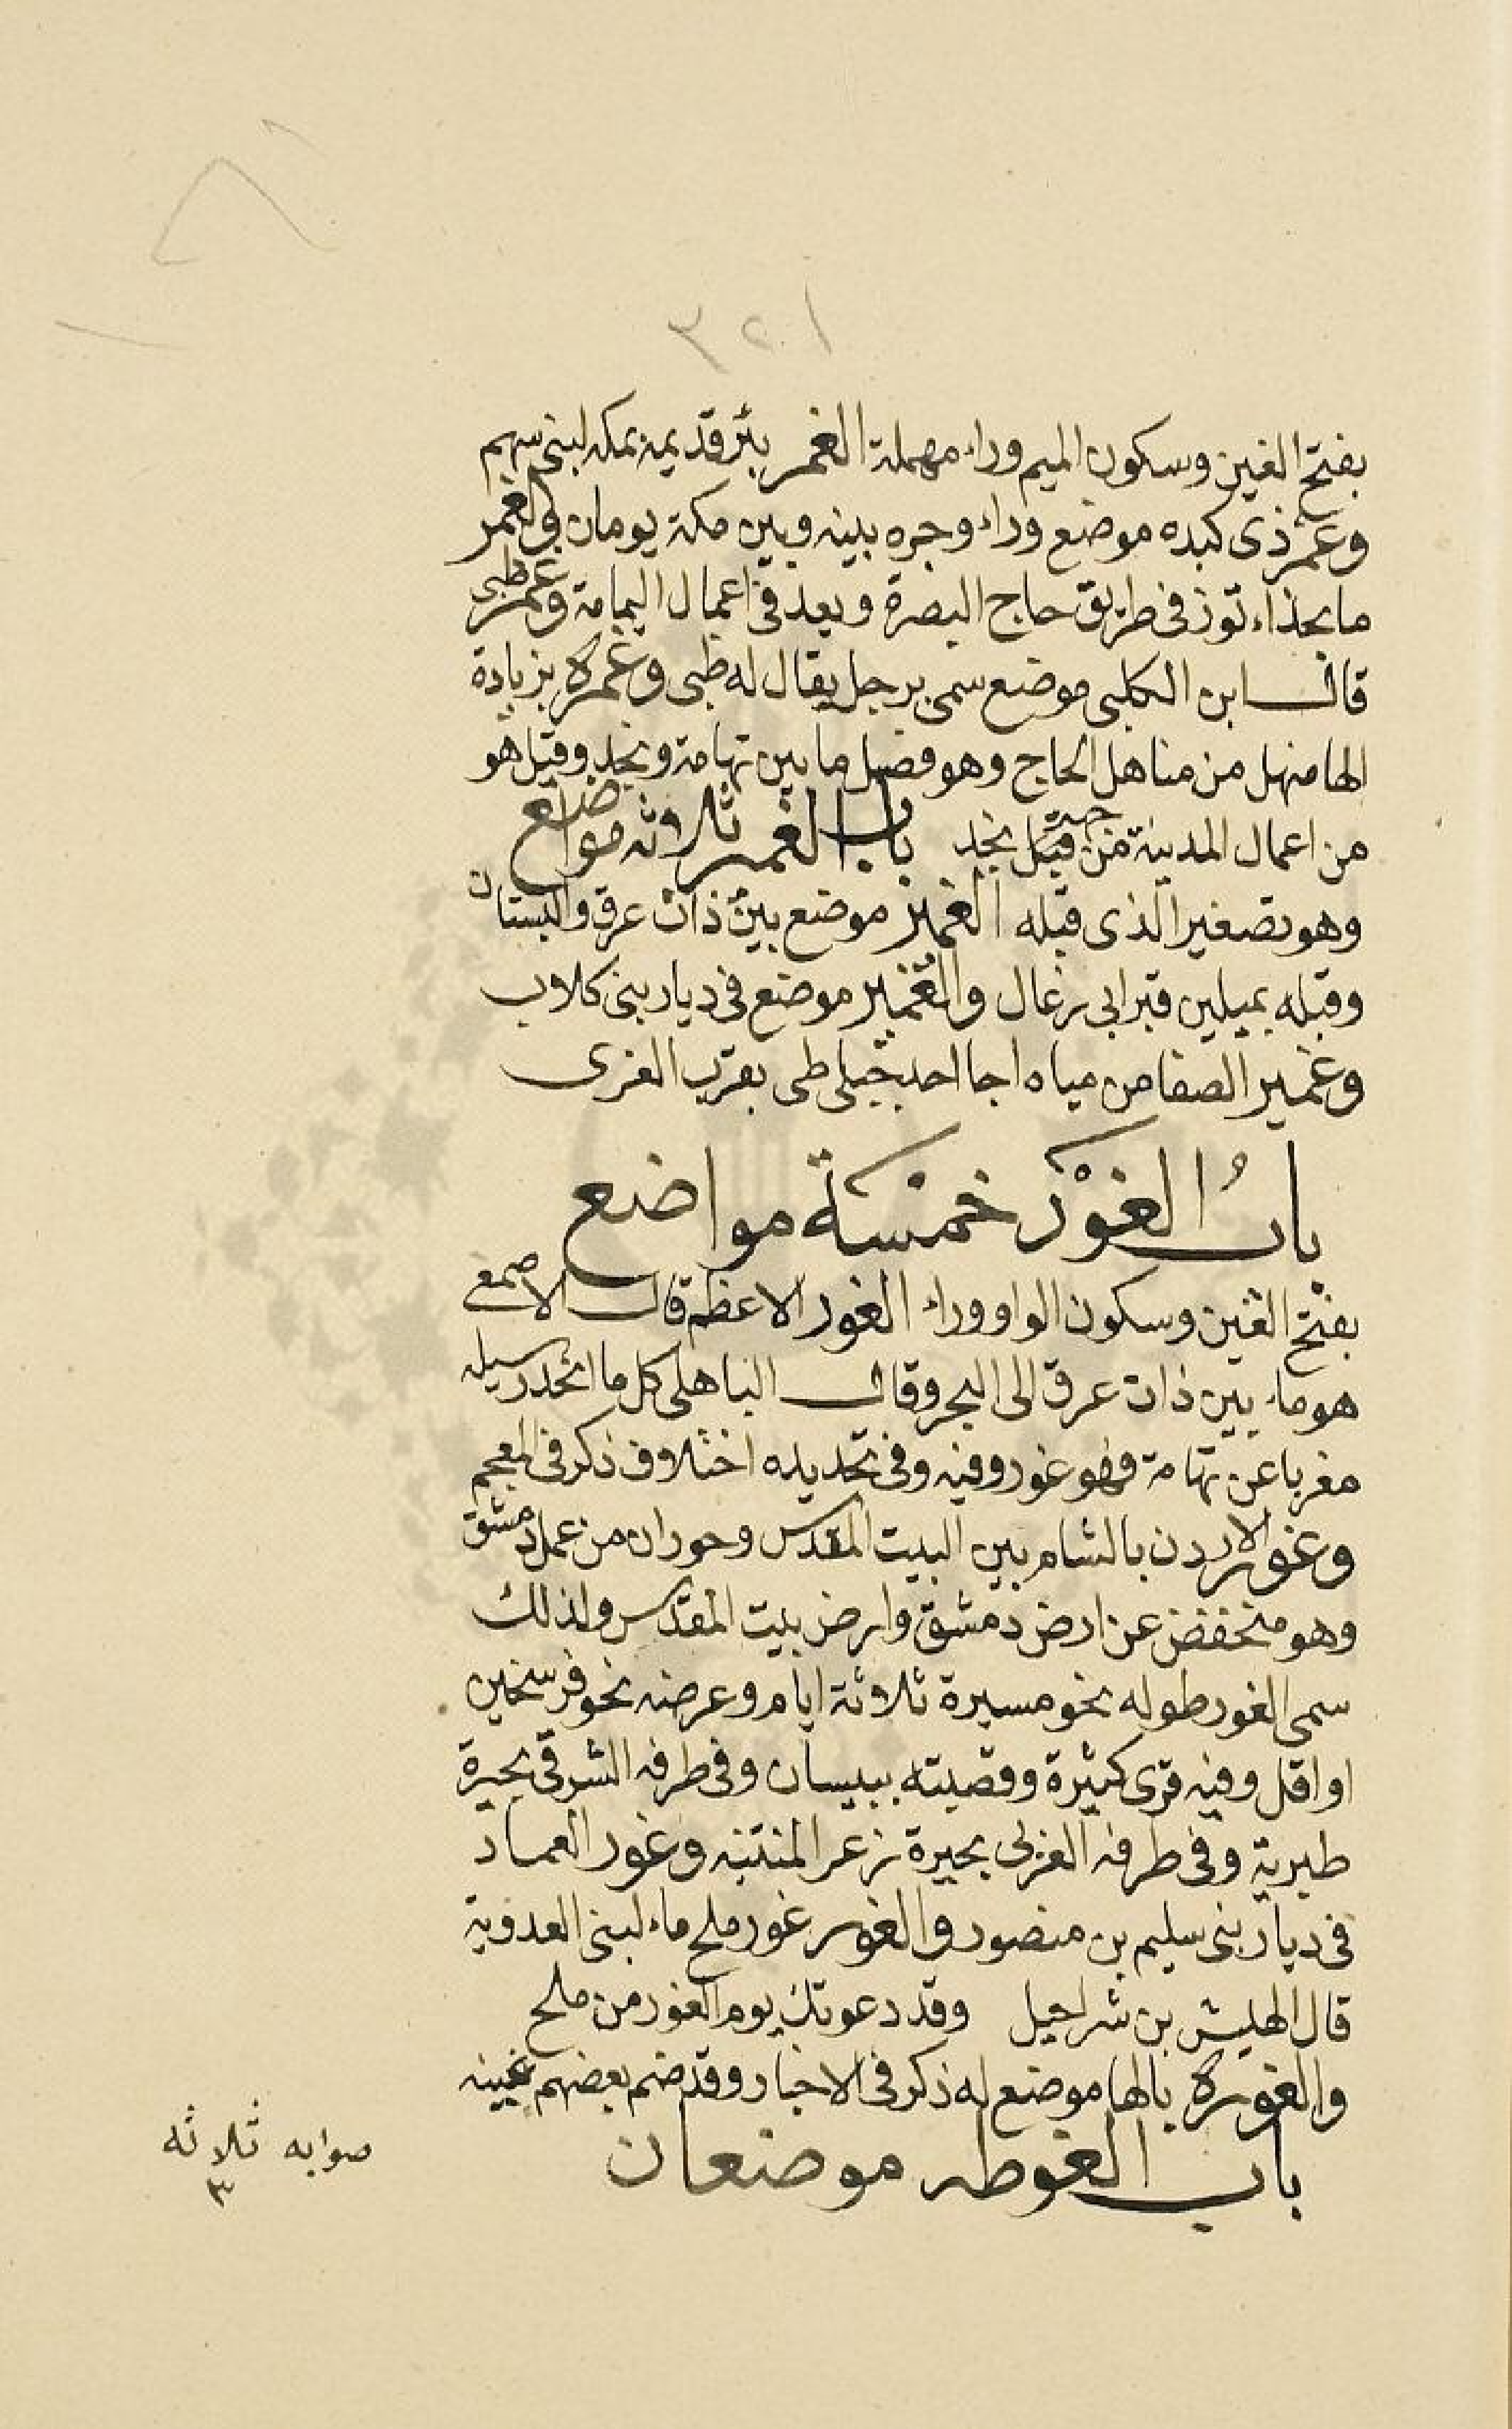 ٣٢١
بفتح الغين وسكون الميم وراء مهملة الغمر بئر قديمة بمكه لبنى سهم
وغمر ذى كنده موضع وراء وجره بينه وبين مكة يومان والغمر
ما بحذاء توز فى طريق حاج البصرة ويعد فى اعمال اليمامة وغمر طبى
قال ابن الكلبى موضع سمى برجل يقال له ظبى وغمره بزيادة
الها منهل من مناهل الحاج وهو فصل ما بين تهامة ونجد وقيل هو
من اعمال المدينة من جهة قبل نجد باب الغمير ثلاثه مواضع
وهو تصغير الذى قبله الغمير موضع بين ذات عرق والبستان
وقبله بميلين قبر ابى رغال والغمير موضع فى ديار بنى كلاب
وغمير الصفا من مياه اجا احد جبلى طى بقرب الغرى
بابُ الغوْر خمسة مواضع
بفتح الغين وسكون الواو وراء الغور الاعظم قال الاصمعى
هو ماء بين ذات عرق الى البحر وقال الباهلى كل ما انحدر سيله
مغربا عن تهامة فهو غور وفيه وفى تحديده اختلاف ذكر فى المعجم
وغور الاردن بالشام بين البيت المقدس وحوران من عمل دمشق
وهو منخفض عن ارض دمشق وارض بيت المقدس ولذلك
سمى الغور طوله نحو مسيرة ثلاثة ايام وعرضه نحو فرسخين
او اقل وفيه قرى كثيرة وقصبته بيسان وفى طرفه الشرقى بحيرة
طبرية وفى طرفه الغربى بحيرة زعر المنتنه وغور العماد
فى ديار بنى سليم بن منصور والغور غور ملح ماء لبنى العدوية
قال الهيش بن شراحيل وقد دعوتك يوم الغور من ملح
والغوره بالها موضع له ذكر فى الاخبار وقد ضم بعضهم غينه
باب الغوطه موضعان
صوابه ثلاثه
٣